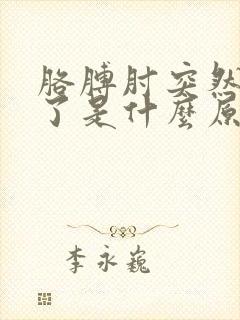 胳膊肘突然
了是什麼原
李永巍